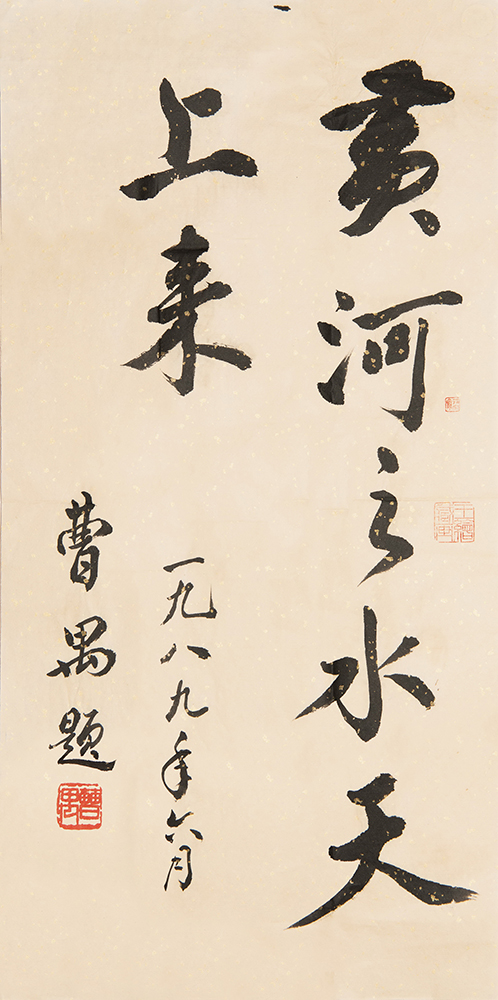 黄河之水天
上来
一九八九年六月
曹禺题
曹禺